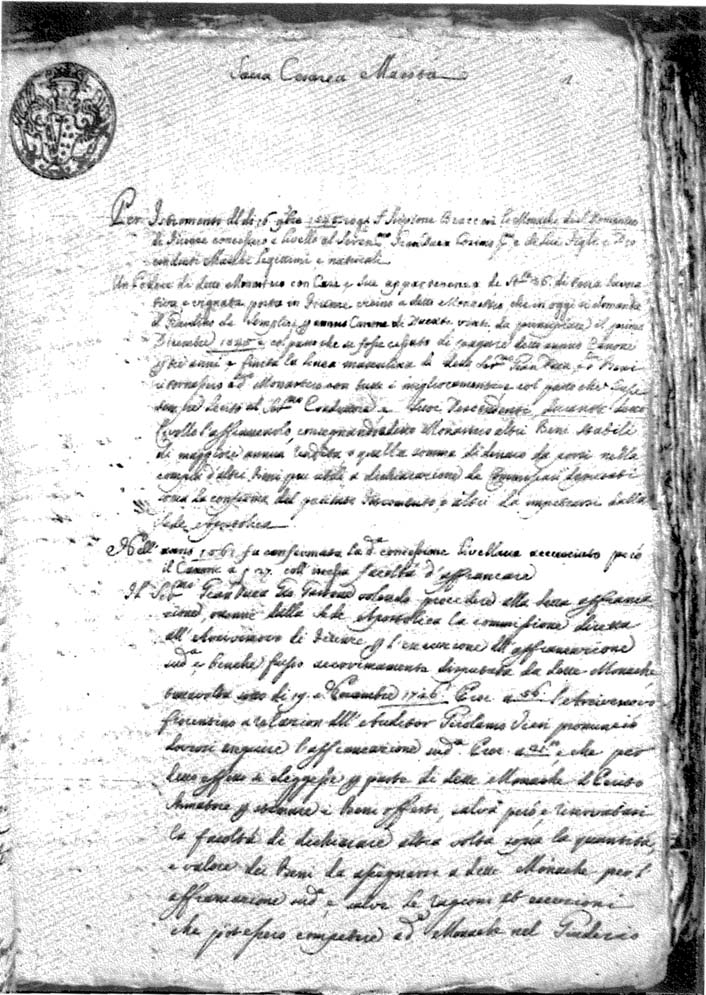 Sacra Cesarea Maestà
1
Per Istromento del dì 16 1545 rogò S. Scipione Braccesi le Monache di S. Domenico
di Firenze concessero a livello al Seren.mo Gran Duca Cosimo P.mo e di Lui Figli, e
Maschi legittimi e naturali
Un Podere di dette Monastero con Case e Sue appartenenze di St.a 36. di terra lavora
tiva e vignata posta in Firenze vicino a dette Monastero, che in oggi si domanda
il Giardino de Semplici p annuo Canone di Ducati venti da principiare il primo
Dicembre 1545 e col patto che se fosse cessato di pagare detto annuo Canone
p tre anni e finita la linea mascolina di detto Ser.mo Gran Duca i Beni
ritornassero ad.o Monastero con tutti i miglioramenti e col patto che fusse
sempre lecito al Ser.mo Conduttore e Suoi Descendenti durante detto
Livello l'affrancarlo, consegnando a detto Monastero altri Beni stabili
di maggiore annua rendita o quella somma di denaro da porsi nella
compra d'altri Beni piu utili a dichiarazione de Commissari deputati
sopra la conferma del presente Istromento o altri da impetrarsi dalla
Sede Apostolica
Nell'anno 1561 fu confermata la d.a concessione Livellaria accresciuto però
il Canone a 27. coll'istessa facoltà d'affrancare
Il Ser.mo Gran Duca Gio Gastone volendo procedere alla detta affranca
zione, ottenne dalla Sede Apostolica la commissione diretta
all'Arcivescovo di Firenze p l'esecuzione dell'affrancazione
sud.a e benche fusse acerrimamente disputata da dette Monache
tuttavolta sotto dì 19. Decembre 1726. Proc. a 56. l'Arcivescovo
fiorentino a relazion dell'Auditor Girolamo Vieri pronunziò
doversi eseguire l'affrancazione sud.a Proc. a e che per
detto effetto si eleggesse p parte di dette Monache il Perito
p stimare i Beni offerti, salva però e riservatasi
la facoltà di dichiarare altra volta sopra la quantità,
e valore dei Beni da assegnarsi a dette Monache per l'
affrancazione sud.a e salve le ragioni ed eccezioni
che potessero competere ad.e Monache nel Giudizio